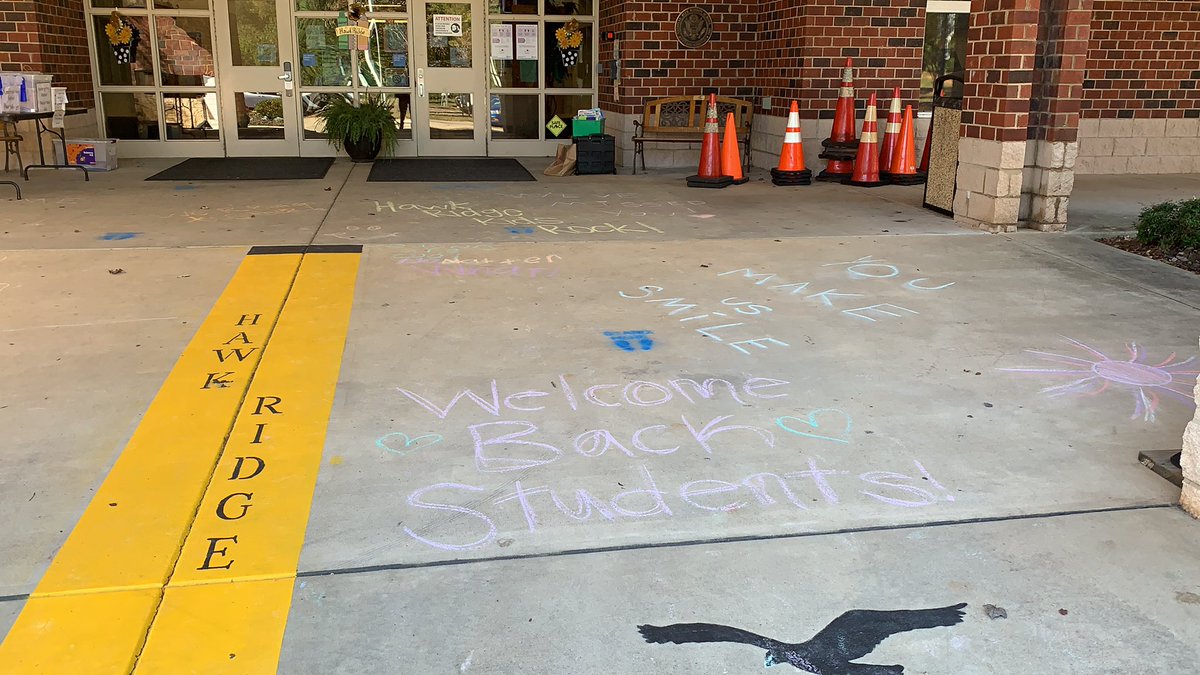 ATTENTION
Hawk
Ridge
Kids
Rock!
Warren
YOU
MAKE
US
SMILE
HAWK
RIDGE
Welcome
Back
Students!